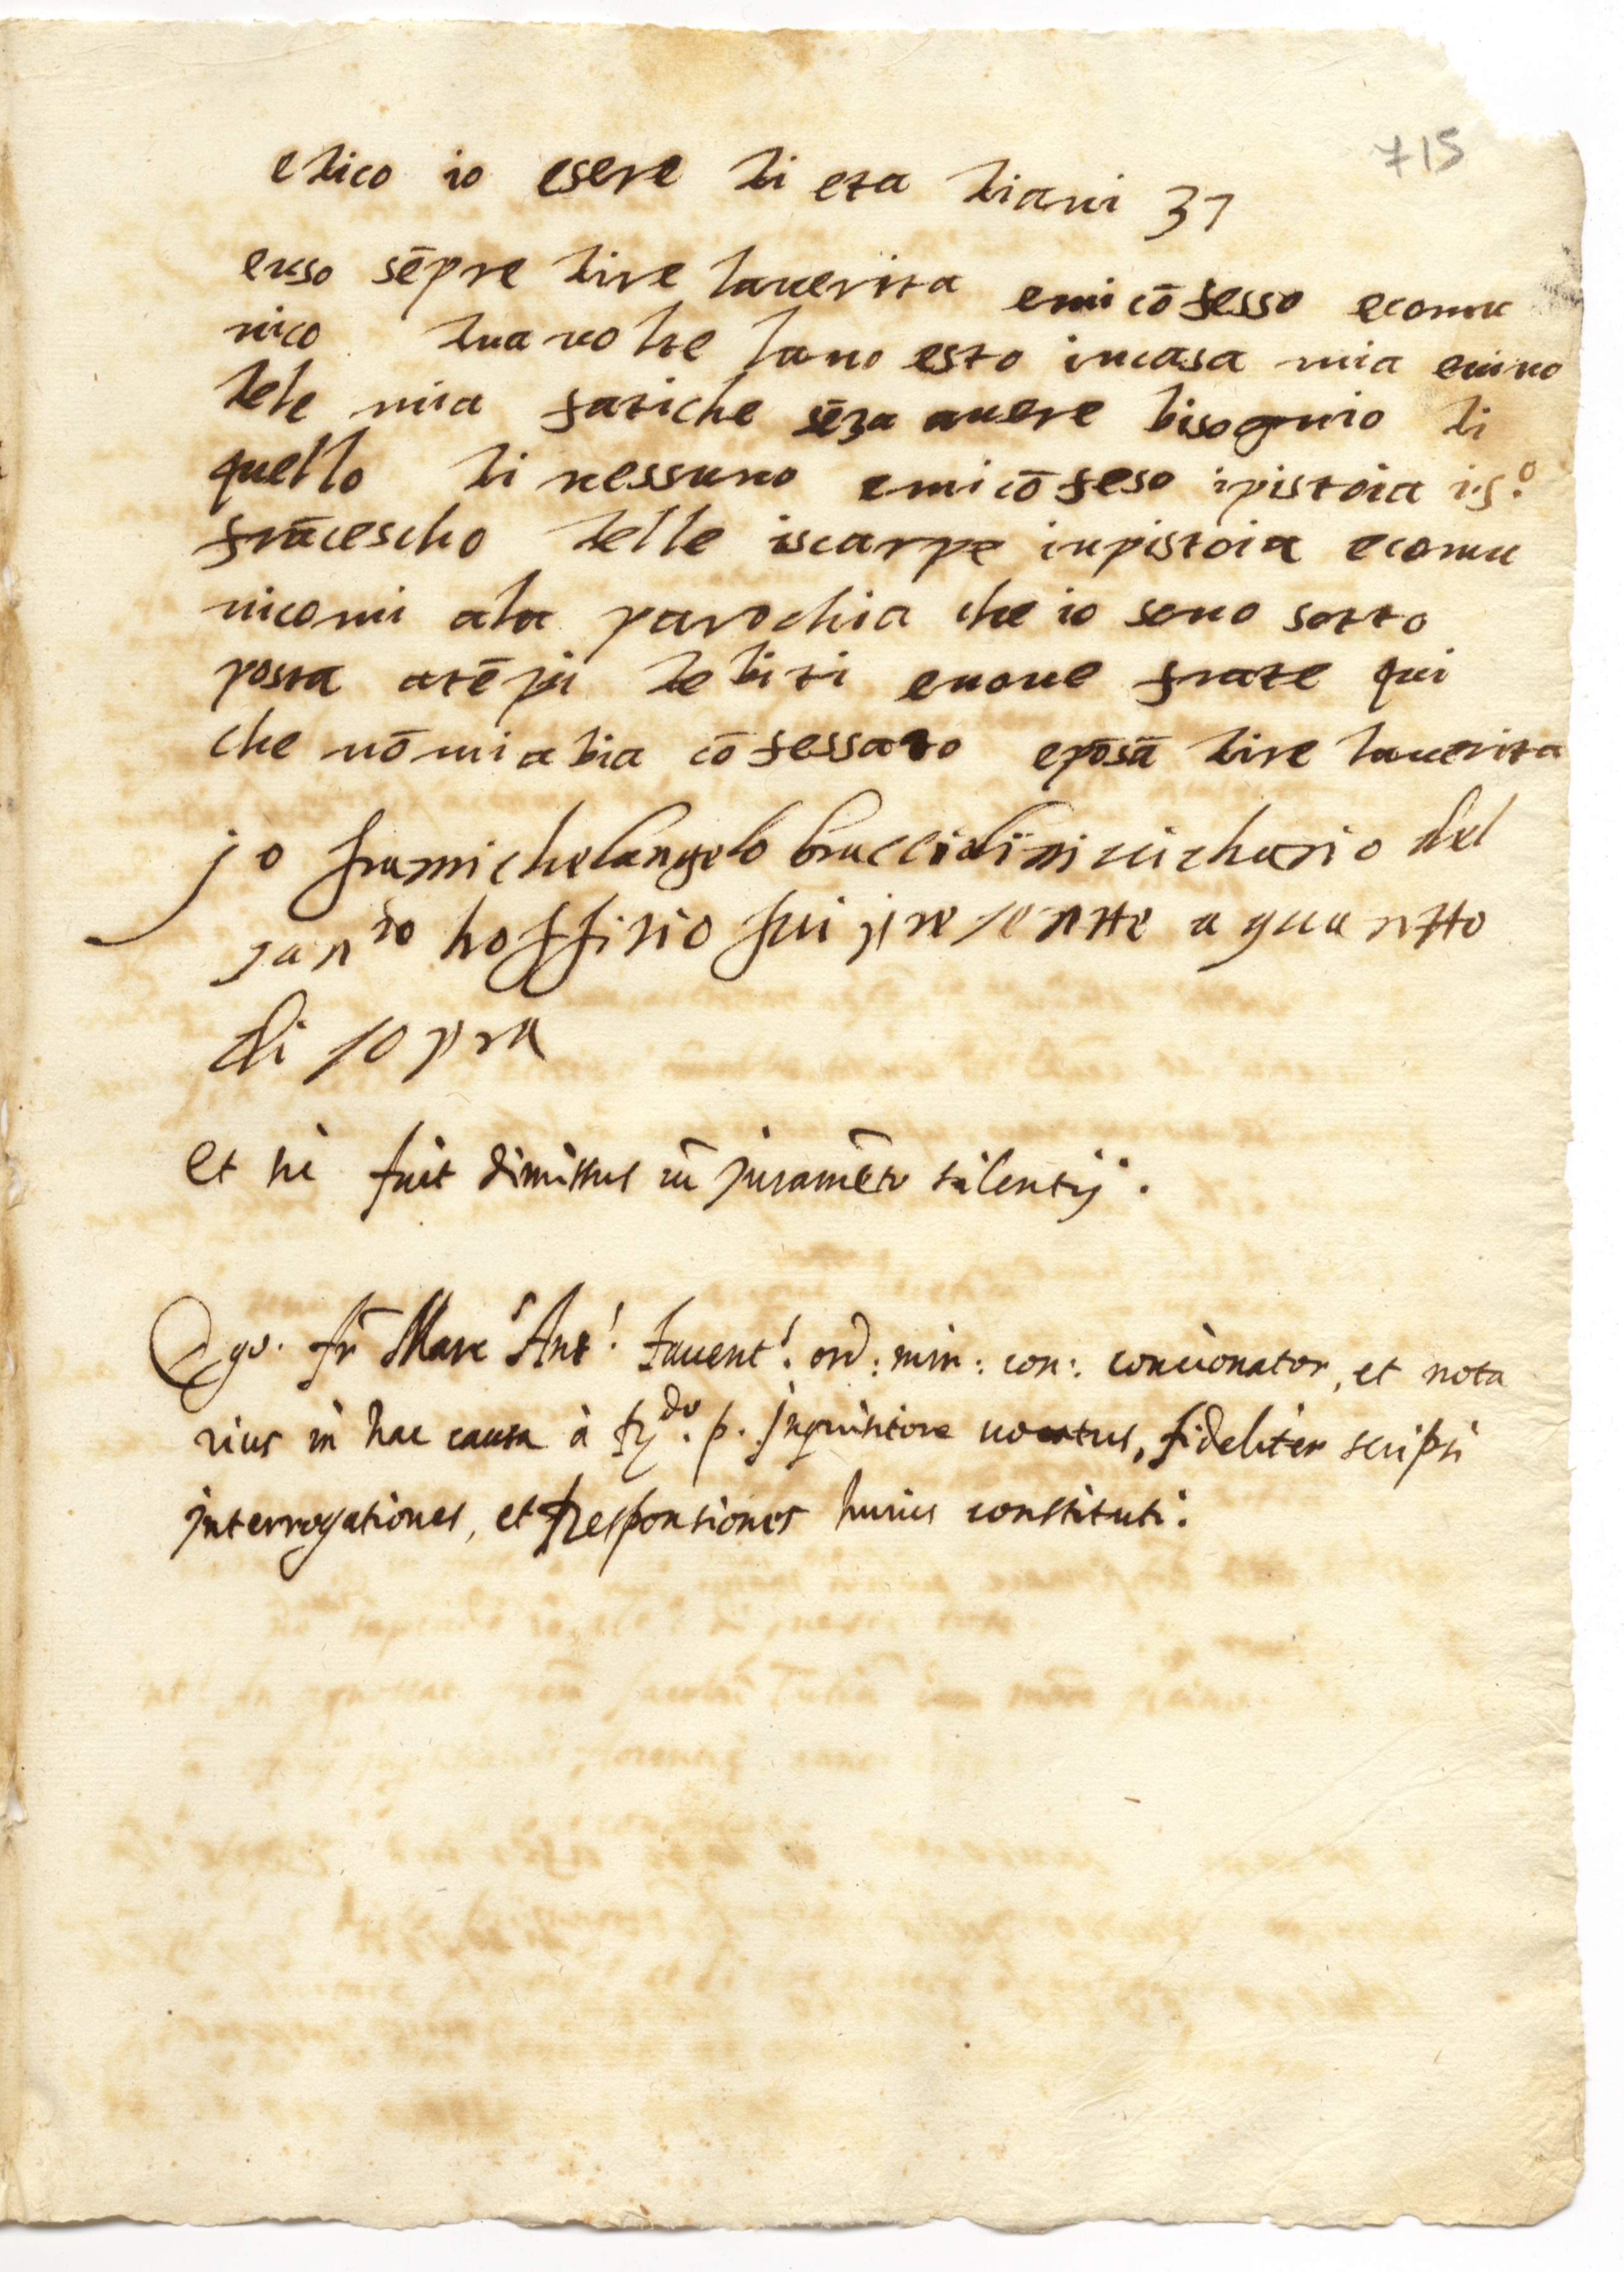 715
e dico io esere di eta di ani 37
e uso sēpre dire la uerita e mi cōfesso e comu
nico dua uolte lano e sto in casa mia e uiuo
dele mia fatiche sēza auere bisognio di
quello di nessuno e mi cōfeso ipistoia i s.º
frācescho delle iscarpe in pistoia e comu
nicomi ala parochia che io sono sotto
posta a tēpi debiti e non e frate qui
che nō mi abia cōfessato e posā dire la uerita
jo fra michelangelo bracciolini uichario del
santo hoffitio fui presentte a quantto
di sopra
et sic fuit dimissus cū juramēto silentij.
Ego fr Marc' Ant! fauent! ord: min: con: concionator, et nota
rius in hac causa à p. Inquisitore uocatus, fideliter scripsi
interrogationes, et Responsiones huius constituti.